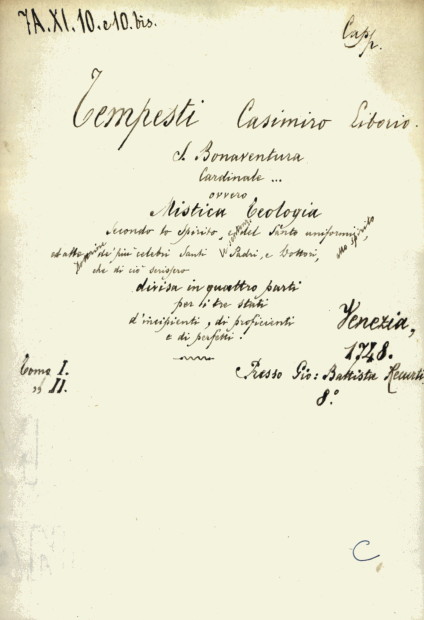 7A.XI.10.e 10.bis.
Capp.
Tempesti Casimiro Liborio.
S. Bonaventura
Cardinale ...
ovvero
Mistica Teologia
Secondo lo Spirito, e del Santo uniformi,
ed alle di più celebri Santi Padri, e Dottori,
che di ciò scrissero
divisa in quattro parti
per li tre stati
d'incipienti, di proficienti
e di perfetti.
Venezia,
1748.
Tomo I.
" II.
Presso Gio: Battista Recurti
8.º
C